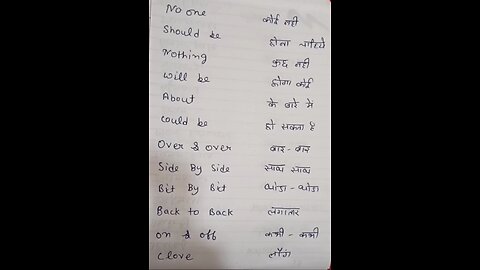 No one कोई नहीं
Should be होना चाहिये
Nothing कुछ नहीं
Will be होगा कोई
About के बारे में
Could be हो सकता है
Over & over बार-बार
Side By Side साथ साथ
Bit By Bit थोडा-थोडा
Back to Back लगातर
on & off कभी-कभी
Clove लौंग